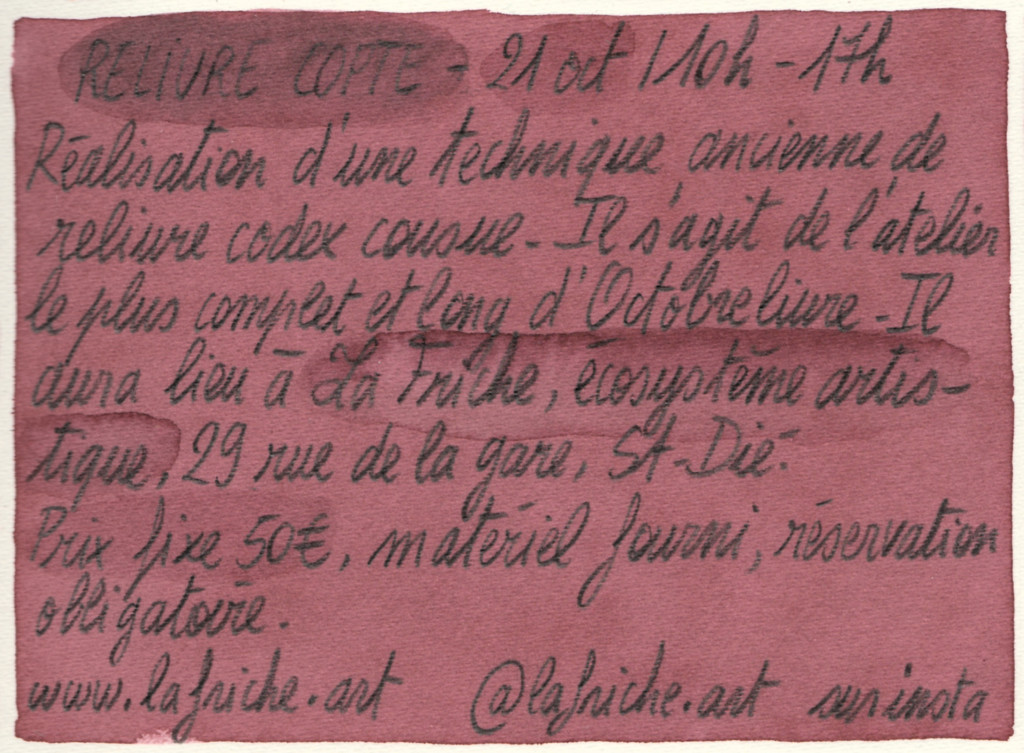 RELIURE COPTE - 21 oct / 10h - 17h
Réalisation d'une technique ancienne de
reliure codex cousue - Il s'agit de l'atelier
le plus complet et long d'Octobreliure - Il
aura lieu à La Friche, écosystème artis-
tique, 29 rue de la gare, St-Dié.
Prix fixe 50€, matériel fourni, réservation
obligatoire.
www.lafriche.art @lafriche.art sur insta